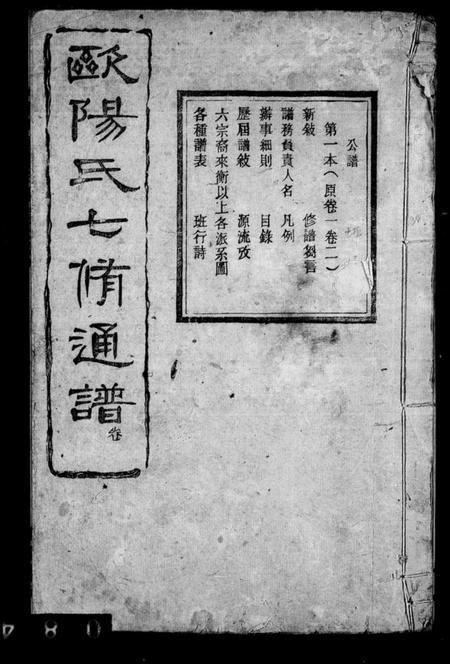 公譜
第一本（原卷一卷二）
新敍 修譜芻言
譜務負責人名 凡例
辦事細則 目錄
歷屆譜敍 源流攷
六宗裔來衡以上各派系圖
各種譜表 班行詩
歐陽氏七脩通譜
卷
0 8 4